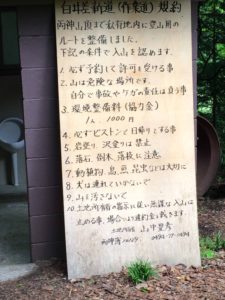 白井差新道(作業道)規約
両神山頂まで私有地内に登山用の
ルートを整備しました。
下記の条件で入山を認めます。
1. 必ず予約して許可を受ける事
2. 山は危険な場所です。
自分で事故やケガの責任は負う事
3. 環境整備料(協力金)
1人. 1000円
4. 必ずピストンで日帰りする事
5. 岩登り、沢登りは禁止
6. 落石、倒木、落枝に注意
7. 動植物、鳥、昆虫などは大切に
8. 犬は連れていかないで
9. 山を汚さないで
10. 土地所有者の指示に従い
入山は
止める事、場合により違約金を頂きます。
土地所有者 山中豊彦
0494-79-0494